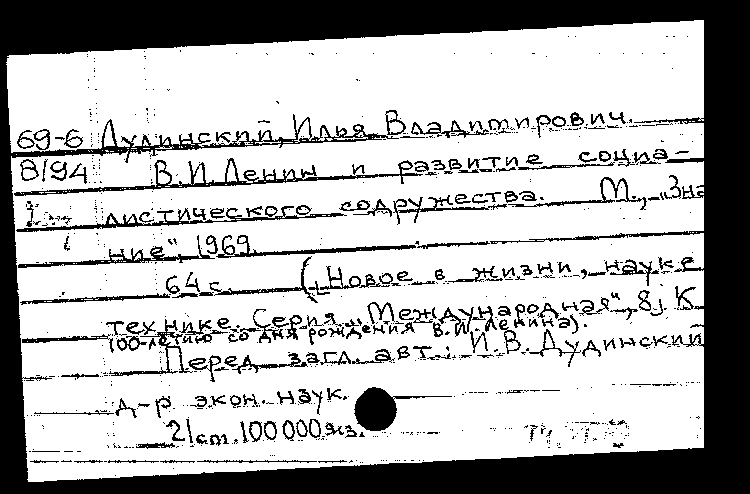 69-6 Дудинский, Илья Владимирович.
8/94 В.И. Ленин и развитие социа-
листического содружества. М., „Зна
ние", 1969.
64 с. („Новое в жизни, науке
технике. Серия „Международная", 8; К
100-летию со дня рождения В.И. Ленина).
Перед загл. авт.: И.В. Дудинский
д-р экон. наук.
100 000 экз.